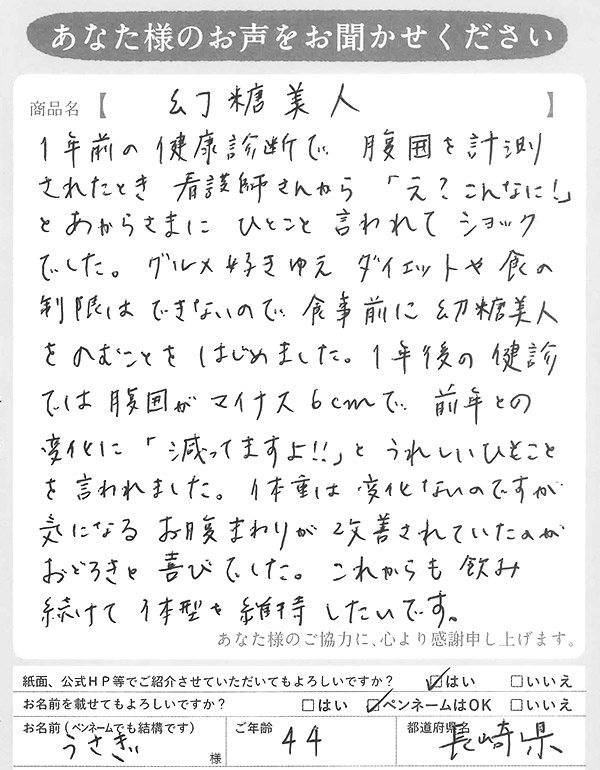 あなた様のお声をお聞かせください
商品名【 幻糖美人 】
1年前の健康診断で 腹囲を計測
されたとき 看護師さんから 「え?こんなに!」
とあからさまに ひとこと 言われて ショック
でした。グルメ好きゆえ ダイエットや食の
制限はできないので 食事前に 幻糖美人
をのむことを はじめました。1年後の健診
では 腹囲が マイナス6cmで 前年との
変化に「減ってますよ!!」と うれしいひとこと
を言われました。体重は 変化ないのですが
気になる お腹まわりが 改善されていたのが
おどろきと 喜びでした。これからも 飲み
続けて 体型を維持 したいです。
あなた様のご協力に、心より感謝申し上げます。
紙面、公式HP等でご紹介させていただいてもよろしいですか? ☑はい □いいえ
お名前を載せてもよろしいですか? □はい ☑ペンネームはOK □いいえ
お名前(ペンネームでも結構です) ご年齢 都道府県名
うさぎ 様 44 長崎県